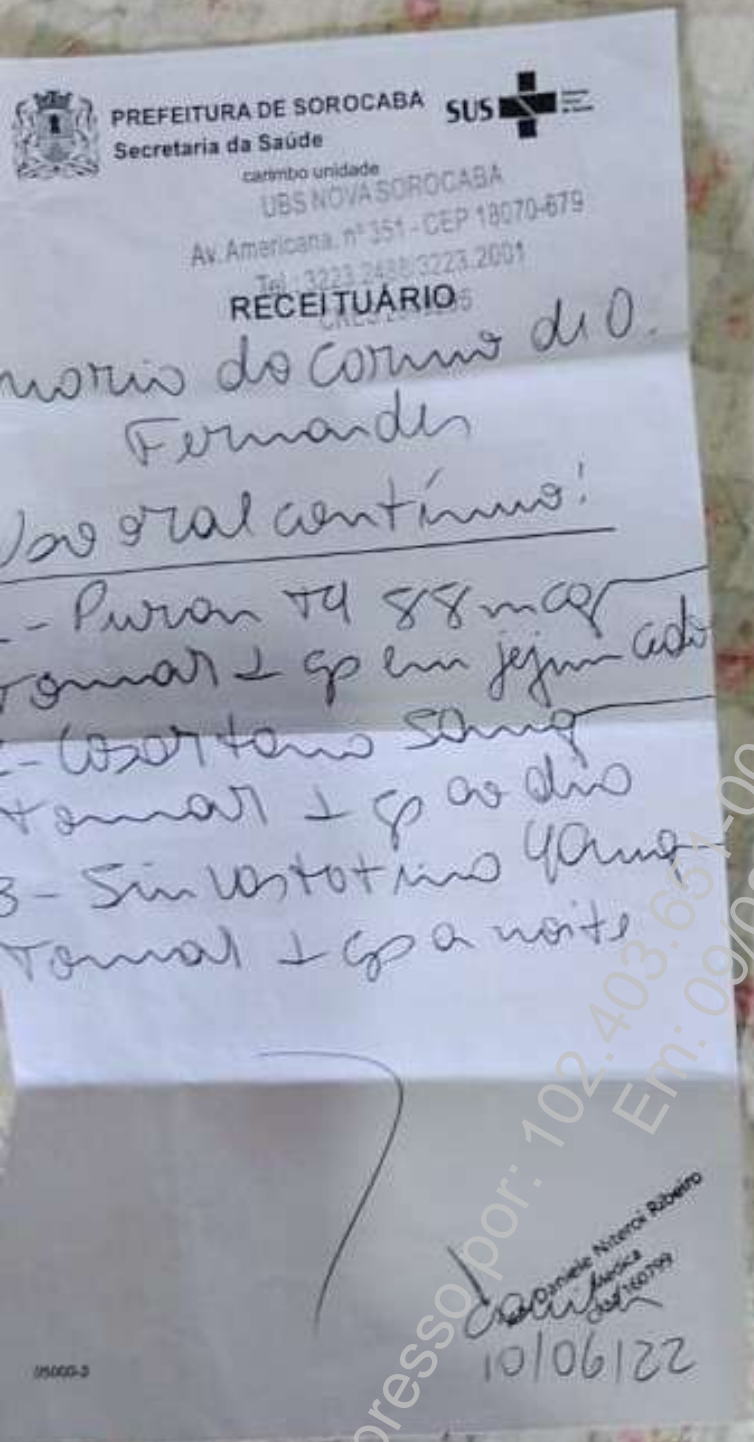 PREFEITURA DE SOROCABA
Secretaria da Saúde
SUS
carimbo unidade
UBS NOVA SOROCABA
Av. Americana, nº 351 - CEP 18070-679
Tel.: 3223.2488/3223.2001
RECEITUÁRIO
Maria do Carmo de O.
Fernandes
Uso oral contínuo!
1 - Puran T4 88mcg
Tomar 1 cp em jejum cedo
2 - Losartana 50mg
Tomar 1 cp ao dia
3 - Sinvastatina 40mg
Tomar 1 cp a noite
Daniele Niteroi Ribeiro
Médica
10/06/22
05000-3
presso por: 102.403.651-00
Em: 09/0